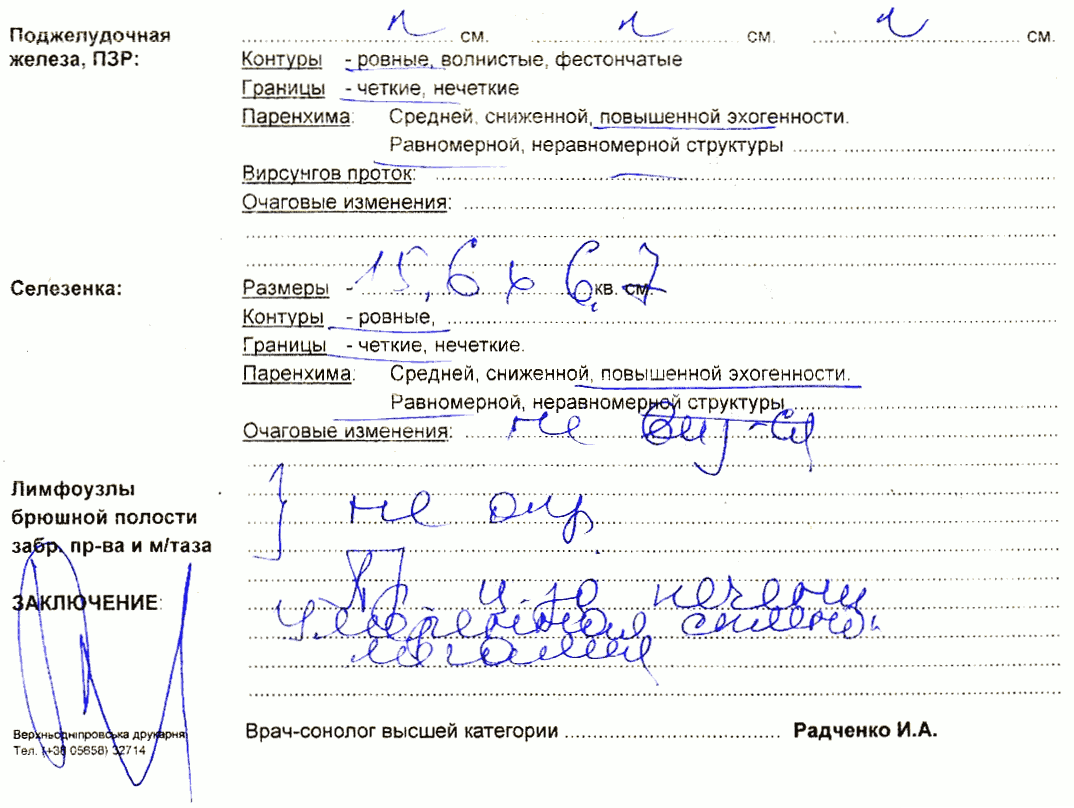 Поджелудочная железа, ПЗР:
n см. n см. n см.
Контуры - ровные, волнистые, фестончатые
Границы - четкие, нечеткие
Паренхима: Средней, сниженной, повышенной эхогенности.
Равномерной, неравномерной структуры
Вирсунгов проток: —
Очаговые изменения:
Селезенка:
Размеры - 15,6 х 6,7 кв. см
Контуры - ровные,
Границы - четкие, нечеткие.
Паренхима: Средней, сниженной, повышенной эхогенности.
Равномерной, неравномерной структуры
Очаговые изменения: не виз-ся
Лимфоузлы
брюшной полости
забр. пр-ва и м/таза
не опр.
ЗАКЛЮЧЕНИЕ:
печени
Умеренная сплено-
мегалия
Верхньодніпровська друкарня
Тел. (+38 05658) 32714
Врач-сонолог высшей категории Радченко И.А.